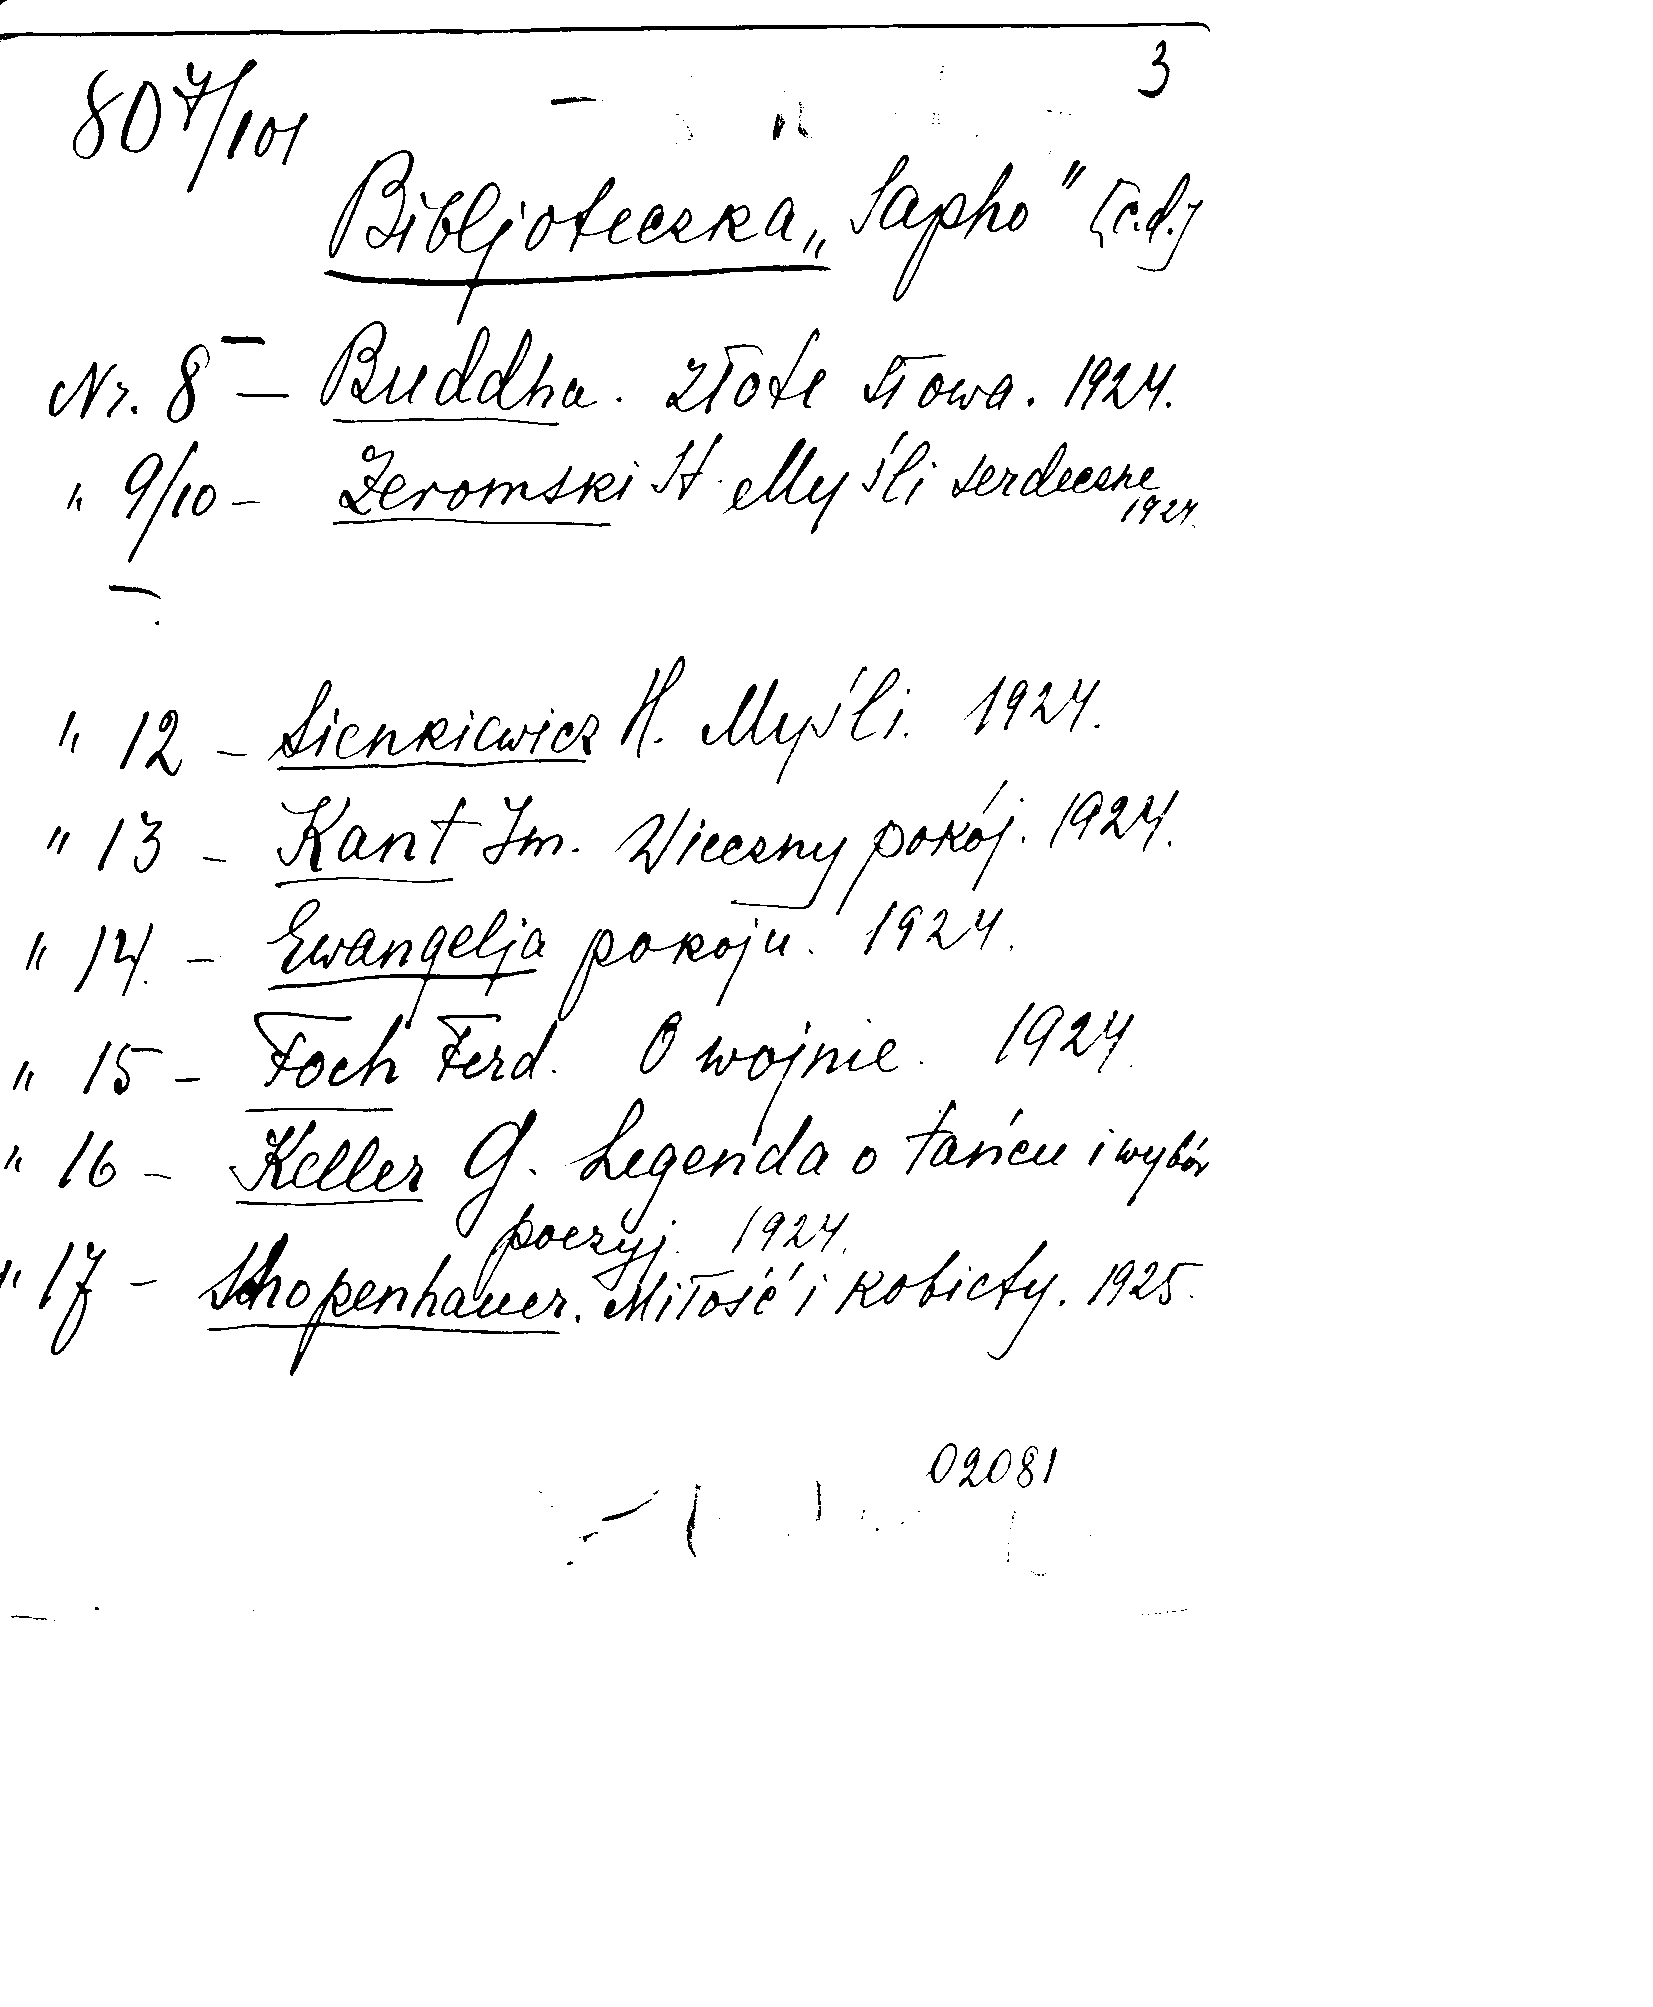 3
807/101
Bibljoteczka „Sapho" [c.d.]
Nr. 8 — Buddha. Złote słowa. 1924.
" 9/10 - Żeromski St. Myśli serdeczne
1924.
" 12 - Sienkiewicz H. Myśli. 1924.
" 13 - Kant Im. Wieczny pokój. 1924.
" 14. - Ewangelja pokoju. 1924.
" 15 - Foch Ferd. O wojnie. 1924.
" 16 - Keller G. Legenda o tańcu i wybór
poezyj. 1924.
" 17 - Schopenhauer. Miłość i kobiety. 1925.
02081